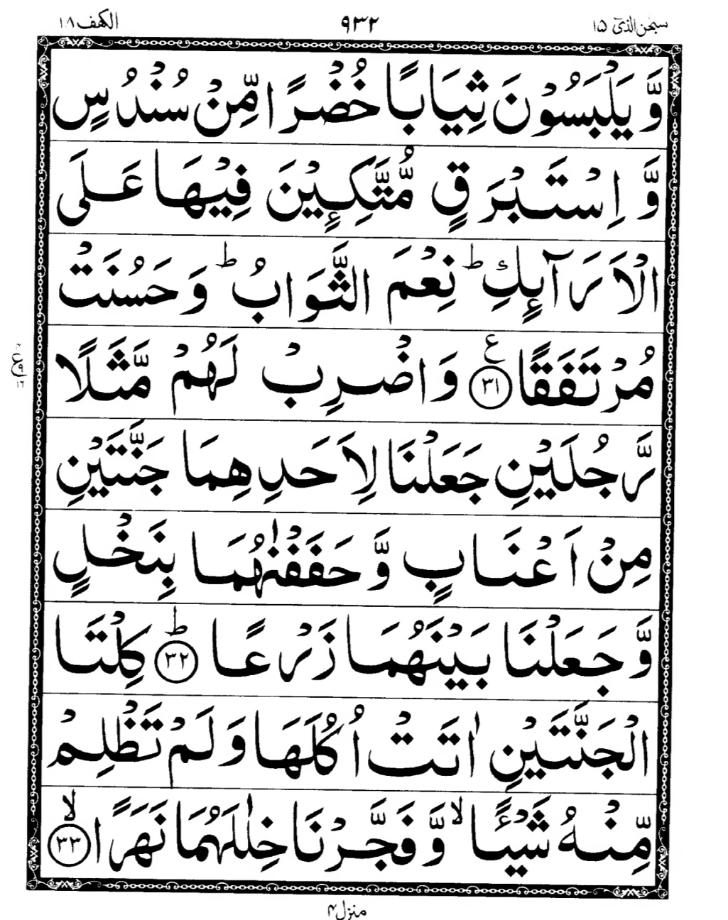 سبحٰن الذیٓ ۱۵ ۹۳۲ الکھف ۱۸
وَّ يَلْبَسُوْنَ ثِيَابًا خُضْرًا مِّنْ سُنْدُسٍ
وَّ اِسْتَبْرَقٍ مُّتَّكِـِٕيْنَ فِيْهَا عَلَى
الْاَرَآئِكِ ؕ نِعْمَ الثَّوَابُ ؕ وَ حَسُنَتْ
مُرْتَفَقًا ۩ع ﴿۳۱﴾ وَاضْرِبْ لَهُمْ مَّثَلًا
رَّجُلَيْنِ جَعَلْنَا لِاَحَدِهِمَا جَنَّتَيْنِ
مِنْ اَعْنَابٍ وَّ حَفَفْنٰهُمَا بِنَخْلٍ
وَّ جَعَلْنَا بَيْنَهُمَا زَرْعًا ؕ﴿۳۲﴾ كِلْتَا
الْجَنَّتَيْنِ اٰتَتْ اُكُلَهَا وَلَمْ تَظْلِمْ
مِّنْهُ شَيْـًٔا ۙ وَّ فَجَّرْنَا خِلٰلَهُمَا نَهَرًا ۙ﴿۳۳﴾
منزل ۴